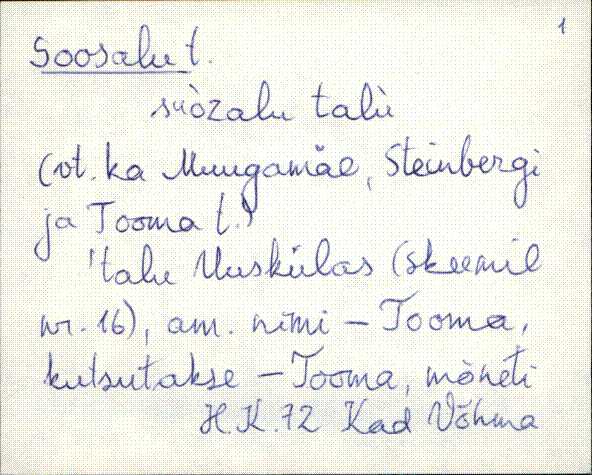 1
Soosalu t.
sùòzalu talù
(vt. ka Muugamäe, Steinbergi
ja Tooma t.)
'talu Uuskülas (skeemil
nr. 16), am. nimi – Tooma,
kutsutakse – Tooma, mõneti
H.K. 72 Kad Võhma